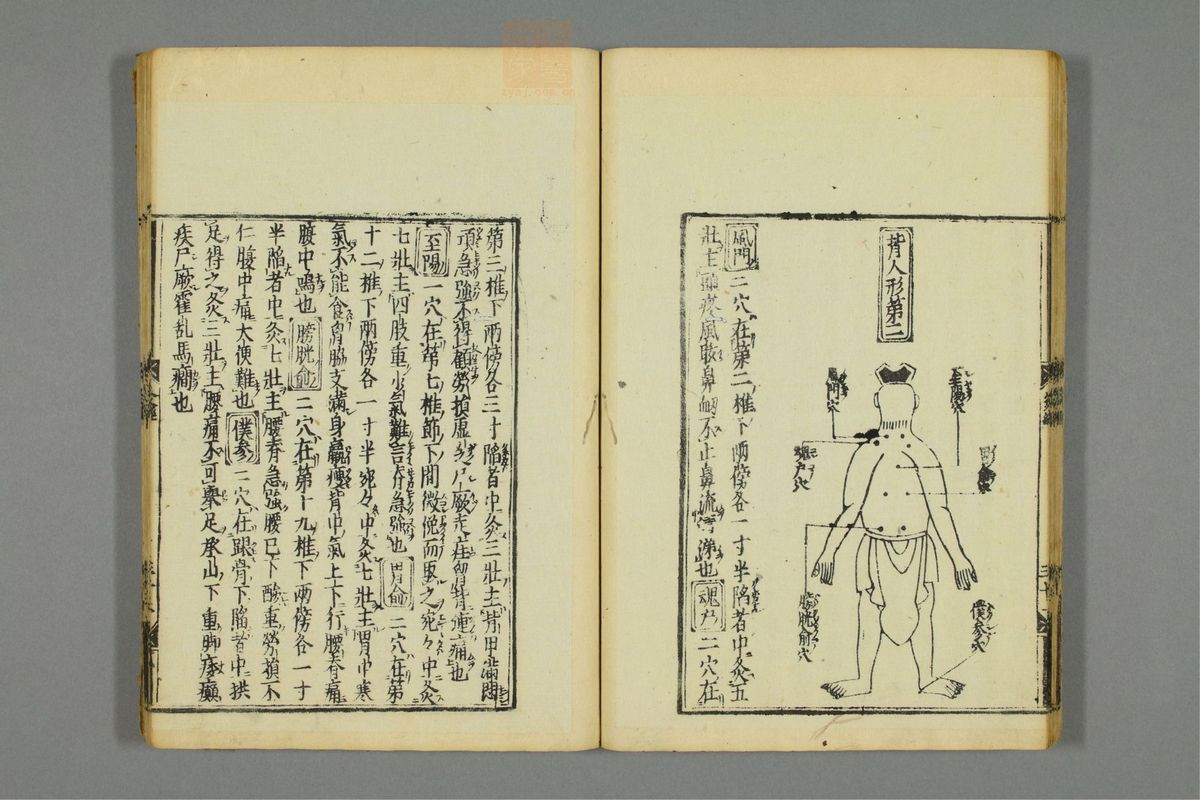 背人形第二
至陽穴
胃俞穴
風門穴
魂戶穴
膀胱俞穴
僕參穴
風門 二穴在第二椎下兩傍各一寸半陷者中灸五
壯主頭疼風眩鼻衄不止鼻流清涕也 魂戶 二穴在
第三椎下兩傍各三寸陷者中灸三壯主背甲滿悶
項急強不得顧勞損虛乏尸厥走疰胷背連痛也
至陽 一穴在第七椎節下間微俛而取之宛々中灸
七壯主四肢重少氣難言脊急強也 胃俞 二穴在第
十二椎下兩傍各一寸半宛々中灸七壯主胃中寒
氣不能食胷脇支滿身羸瘦背中氣上下行腰脊痛
腹中鳴也 膀胱俞 二穴在第十九椎下兩傍各一寸
半陷者中灸七壯主腰脊急強腰已下酸重勞損不
仁腹中痛大便難也 僕參 二穴在跟骨下陷者中拱
足得之灸三壯主腰痛不可舉足承山下重脚痿癲
疾尸厥霍乱馬癇也